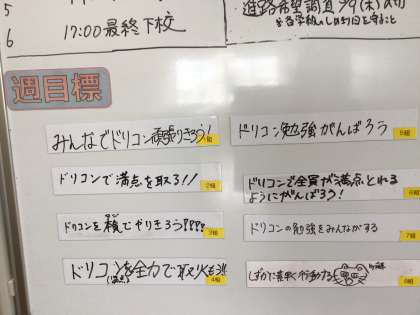 5
6 17:00 最終下校
進路希望調査
週目標
みんなでドリコン頑張りきろう!
1組
ドリコンで満点を取ろう!!
2組
ドリコンを
でやりきろう
3組
ドリコンを全力で取りくもう
(満点)
4組
ドリコン勉強がんばろう
5組
ドリコンで全員が満点とれる
ようにがんばろう!
6組
ドリコンの勉強をみんながする
7組
しずかに素早く行動する
8組